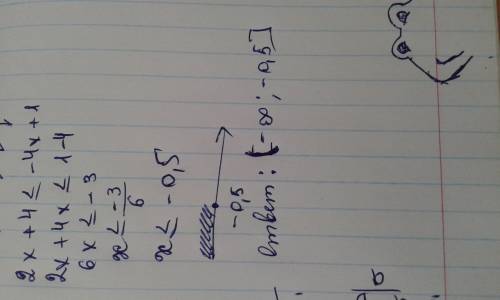 2x + 4 ≤ -4x + 1
2x + 4x ≤ 1 - 4
6x ≤ -3
x ≤ -3/6
x ≤ -0,5
-0,5
Ответ: (-∞; -0,5]